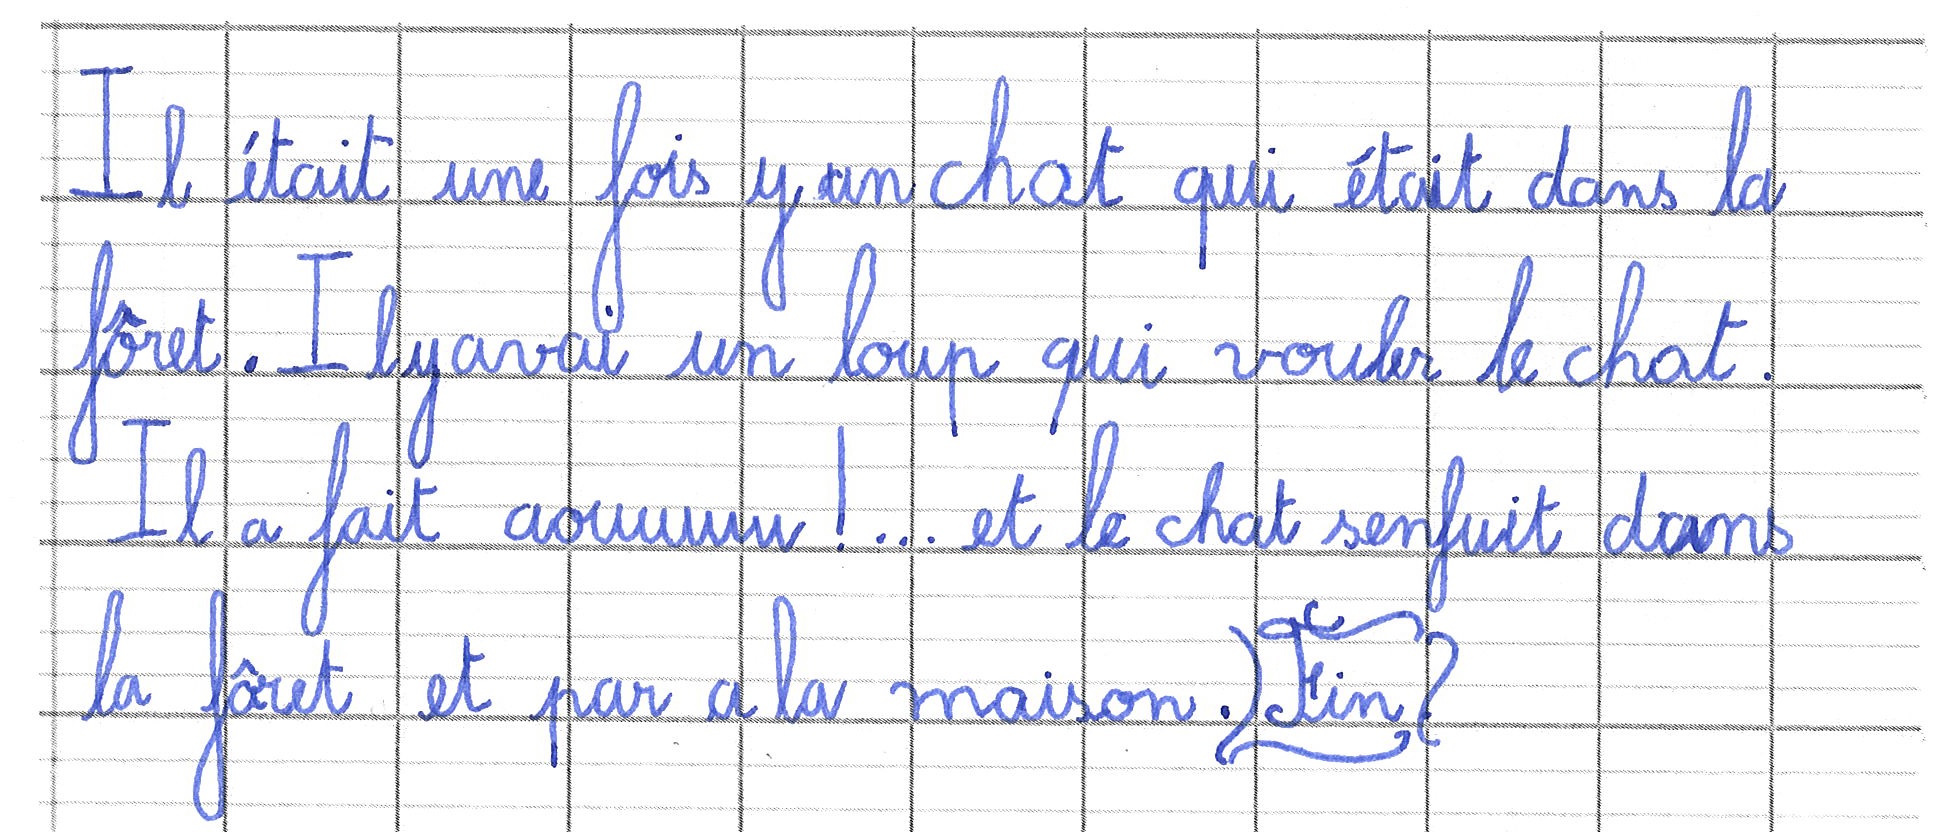 Il était une fois y un chat qui était dans la
fôret. Il yavai un loup qui vouler le chat.
Il a fait aouuuuu !... et le chat senfuit dans
la fôret et par a la maison. Fin